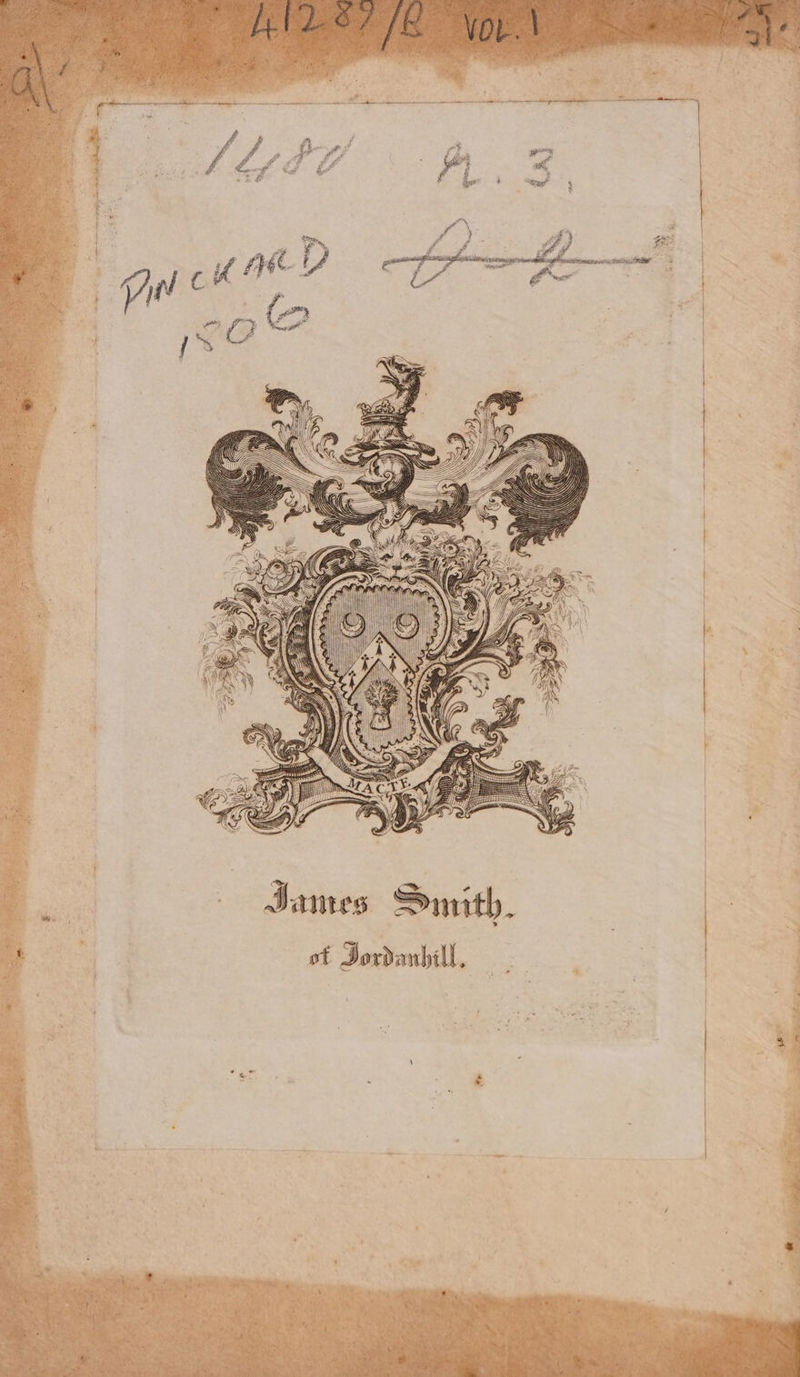 41289/B VOL. 1
1480 A. 3.
PINCKARD
1806
MACTE
James Smith.
of Jordanhill.